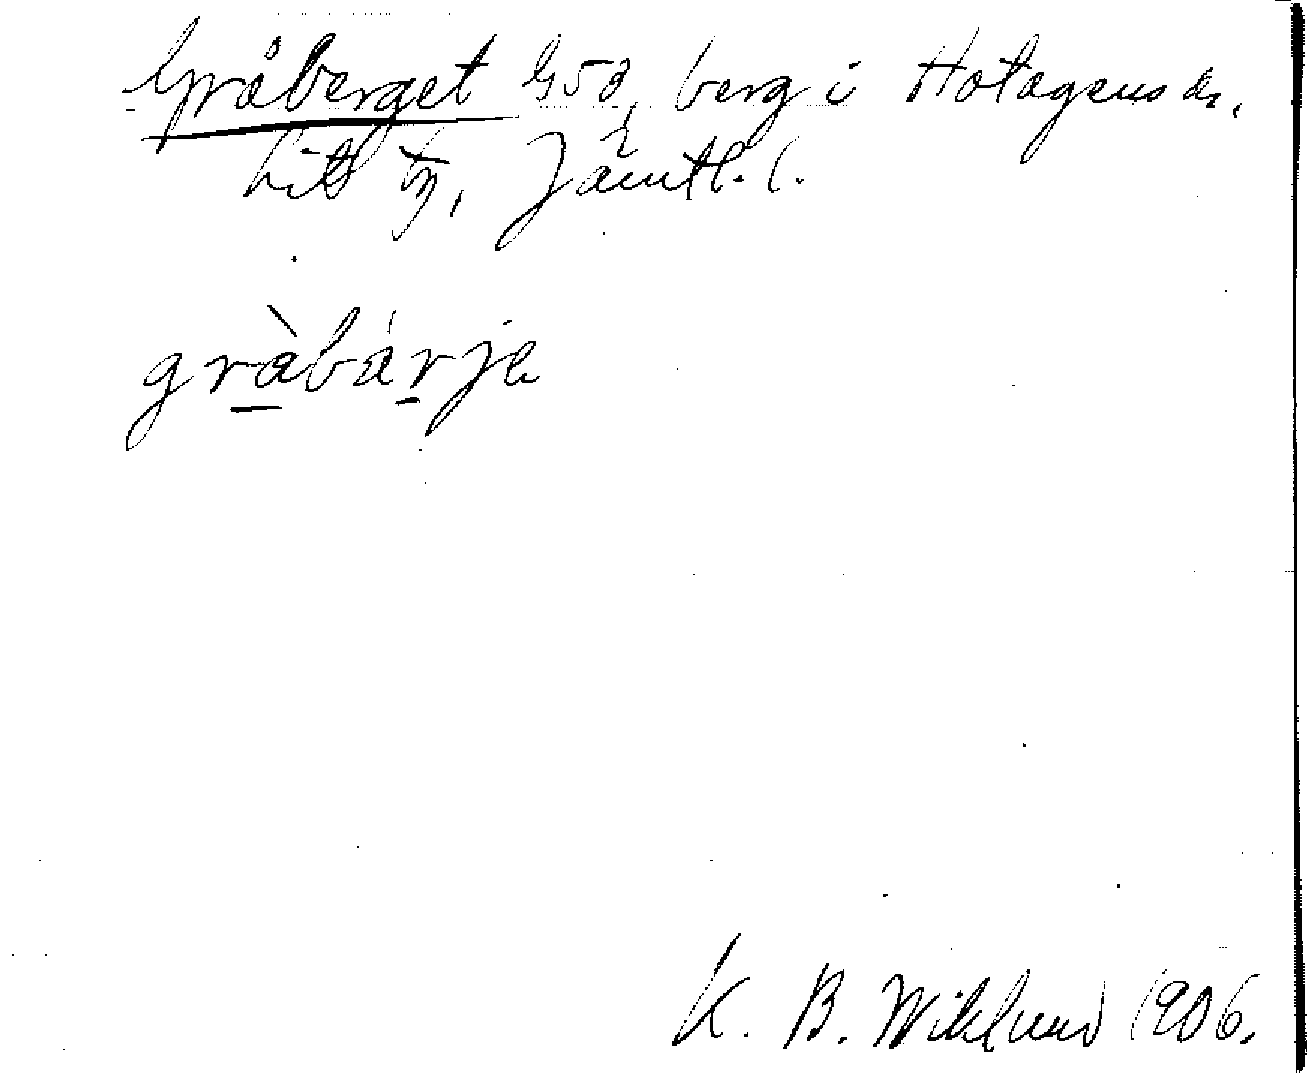 Gråberget G5ö, berg i Hotagens sn,
Lits tg, Jämtl. l.
gràbárje
K. B. Wiklund 1906.